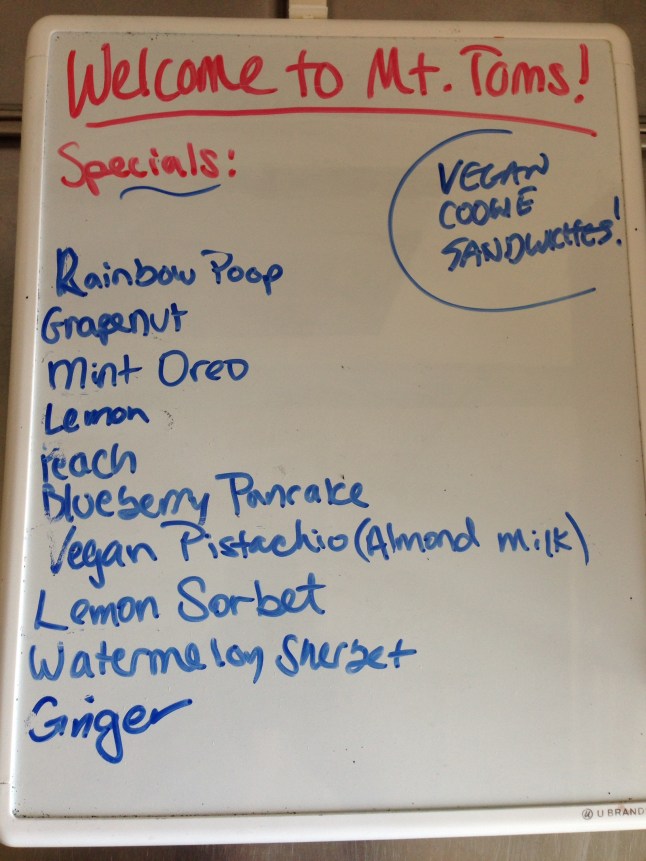 Welcome to Mt. Toms!
Specials:
VEGAN
COOKIE
SANDWICHES!
Rainbow Poop
Grapenut
Mint Oreo
Lemon
Peach
Blueberry Pancake
Vegan Pistachio (Almond milk)
Lemon Sorbet
Watermelon Sherbet
Ginger
U BRAND